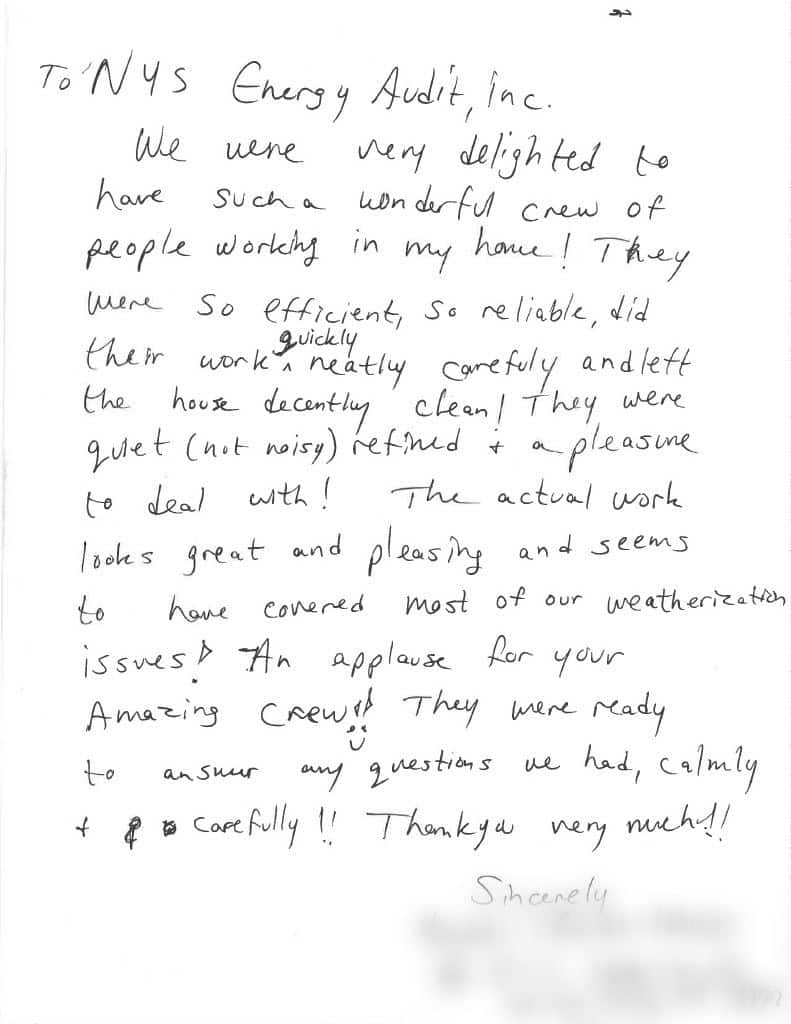 To NYS Energy Audit, inc.
We were very delighted to
have such a wonderful crew of
people working in my home! They
were so efficient, so reliable, did
their work quickly neatly carefuly and left
the house decently clean! They were
quiet (not noisy) refined + a pleasure
to deal with! The actual work
looks great and pleasing and seems
to have covered most of our weatherization
issues! An applause for your
Amazing Crew!! They were ready
to answer any questions we had, calmly
+ carefully!! Thankyou very much!!
Sincerely